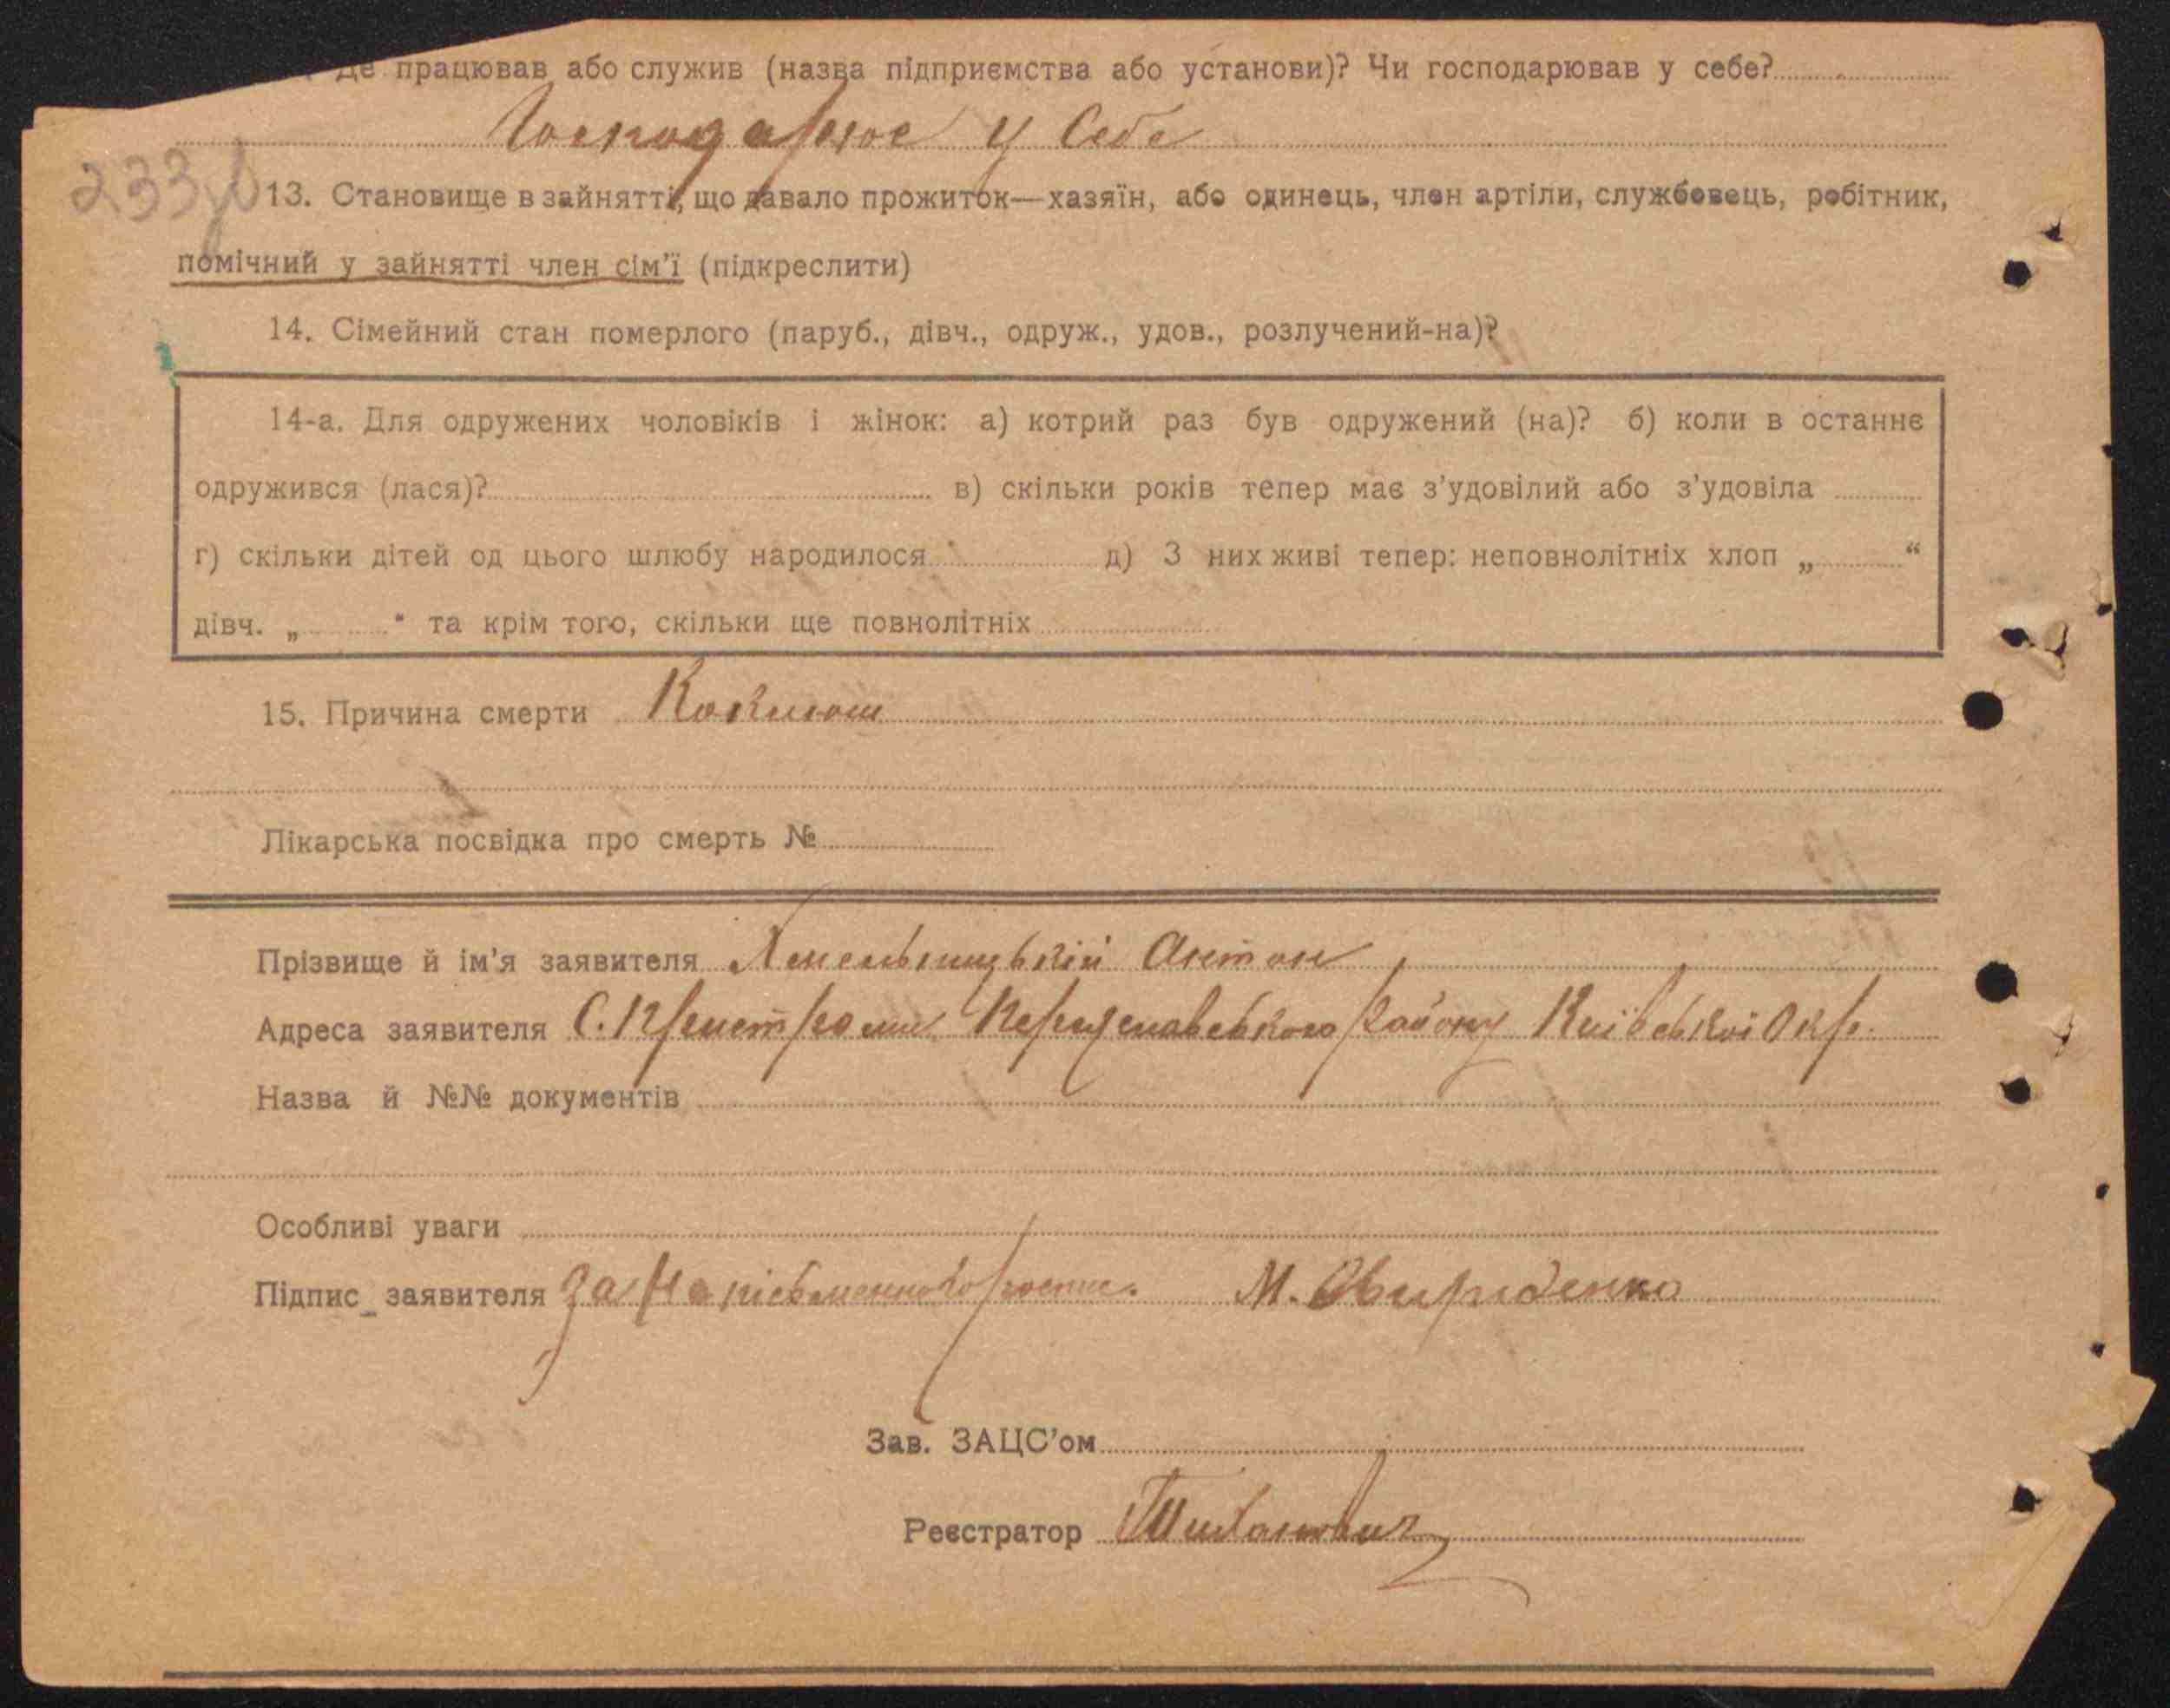 Де працював або служив (назва підприємства або установи)? Чи господарював у себе?
Господарює у Себе
233
13. Становище в зайнятті, що давало прожиток—хазяїн, або одинець, член артіли, службовець, робітник,
помічний у зайнятті член сім'ї (підкреслити)
14. Сімейний стан померлого (паруб., дівч., одруж., удов., розлучений-на)?
14-а. Для одружених чоловіків і жінок: а) котрий раз був одружений (на)? б) коли в останнє
одружився (лася)? в) скільки років тепер має з'удовілий або з'удовіла
г) скільки дітей од цього шлюбу народилося д) З них живі тепер: неповнолітніх хлоп „ “
дівч. „ “ та крім того, скільки ще повнолітніх
15. Причина смерти Коклюш
Лікарська посвідка про смерть №
Прізвище й ім'я заявителя Хмельницькій Антон
Адреса заявителя С. Переяславського Району Київської Окр.
Назва й №№ документів
Особливі уваги
Підпис заявителя За М. Свириденко
Зав. ЗАЦС'ом
Реєстратор